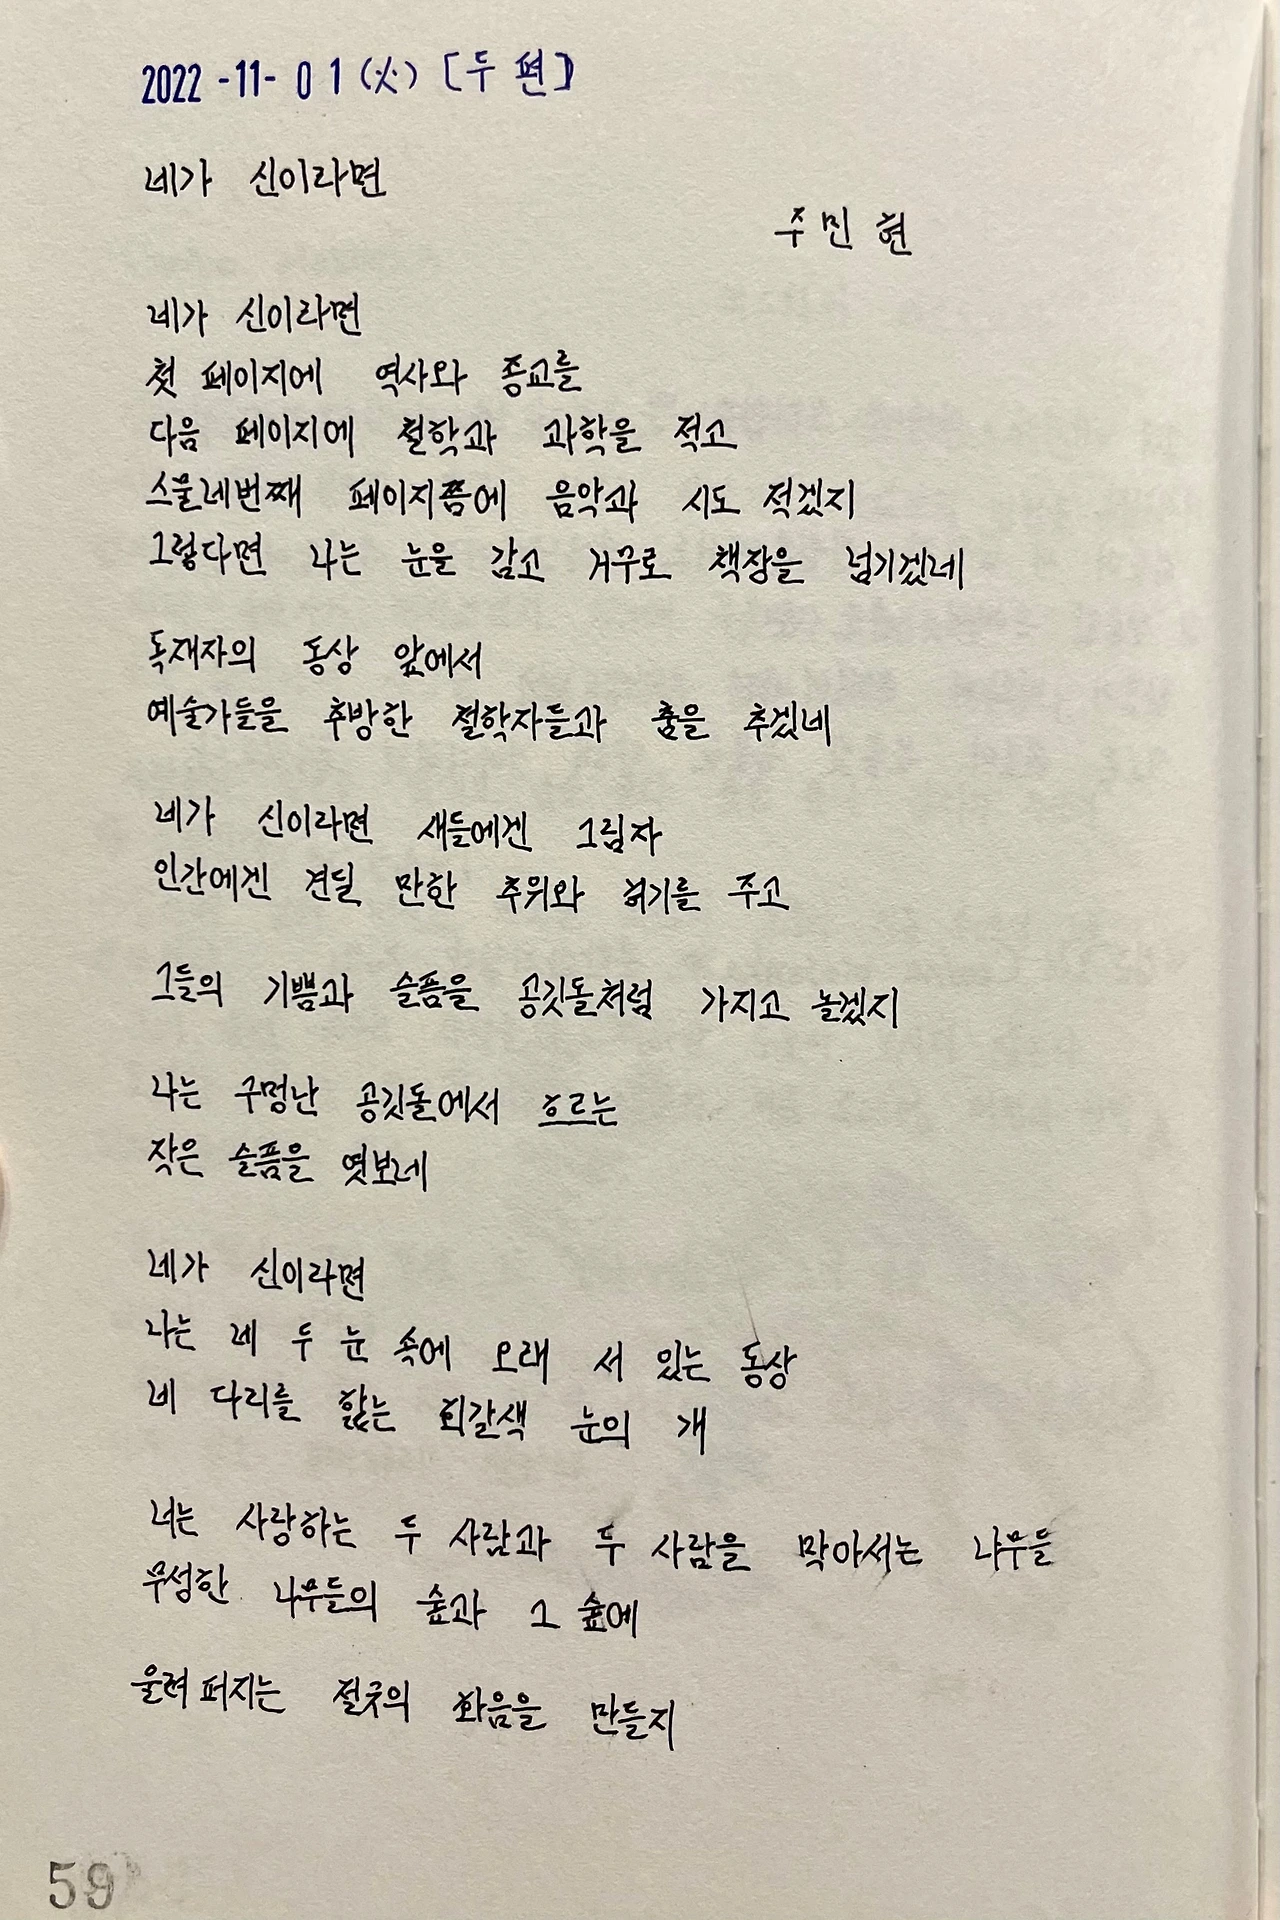 2022-11-01(火) [두 편]
네가 신이라면
주민현
네가 신이라면
첫 페이지에 역사와 종교를
다음 페이지에 철학과 과학을 적고
스물네번째 페이지쯤에 음악과 시도 적겠지
그렇다면 나는 눈을 감고 거꾸로 책장을 넘기겠네
독재자의 동상 앞에서
예술가들을 추방한 철학자들과 춤을 추겠네
네가 신이라면 새들에겐 그림자
인간에겐 견딜 만한 추위와 허기를 주고
그들의 기쁨과 슬픔을 공깃돌처럼 가지고 놀겠지
나는 구멍난 공깃돌에서 흐르는
작은 슬픔을 엿보네
네가 신이라면
나는 네 두 눈 속에 오래 서 있는 동상
네 다리를 핥는 회갈색 눈의 개
너는 사랑하는 두 사람과 두 사람을 막아서는 나무들
무성한 나무들의 숲과 그 숲에
울려 퍼지는 절굿의 화음을 만들지
59